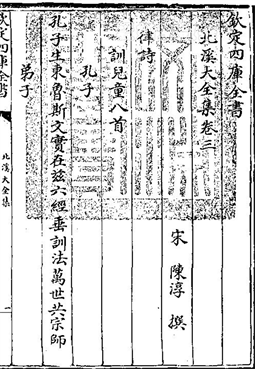 欽定四庫全書
北溪大全集卷三
宋 陳淳 撰
律詩
訓兒童八首
孔子
孔子生東魯斯文實在兹六經垂訓法萬世共宗師
弟子
欽定四庫全書
北溪大全集